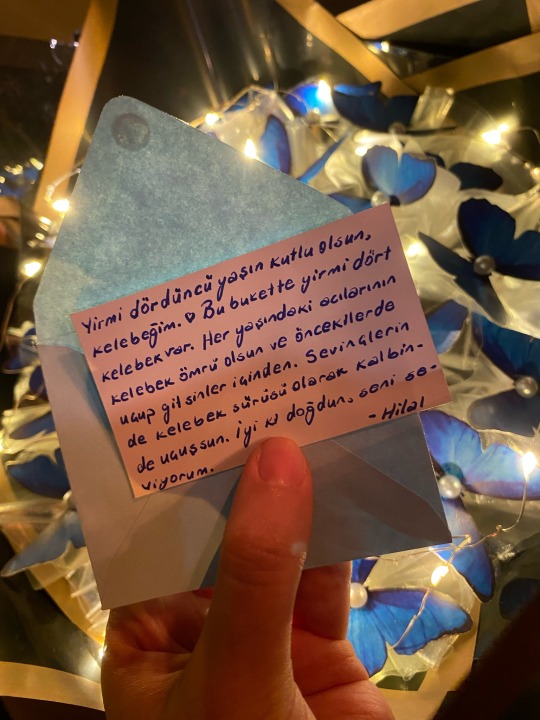 Yirmi dördüncü yaşın kutlu olsun,
kelebeğim. ♡ Bu bukette yirmi dört
kelebek var. Her yaşındaki acılarının
kelebek ömrü olsun ve öncekilerde
uçup gitsinler içinden. Sevinçlerin
de kelebek sürüsü olarak kalbin-
de uçuşsun. İyi ki doğdun, seni se-
viyorum.
- Hilal